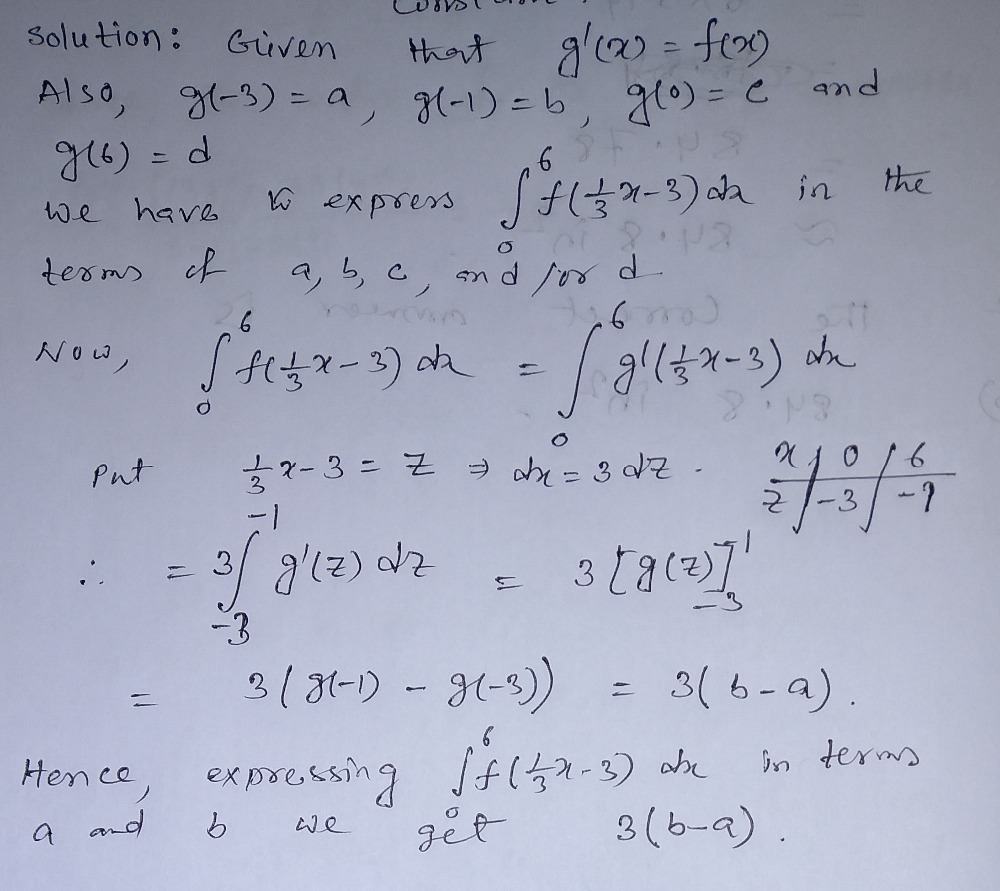 Solution: Given that g'(x) = f(x)
Also, g(-3) = a, g(-1) = b, g(0) = c and
g(6) = d
we have to express ∫₀⁶ f(1/3 x - 3) dx in the
terms of a, b, c, and/or d
Now, ∫₀⁶ f(1/3 x - 3) dx = ∫₀⁶ g'(1/3 x - 3) dx
Put 1/3 x - 3 = z ⇒ dx = 3 dz. x | 0 | 6
z | -3 | -1
∴ = 3∫₋₃⁻¹ g'(z) dz = 3 [g(z)]₋₃⁻¹
= 3(g(-1) - g(-3)) = 3(b-a).
Hence, expressing ∫₀⁶ f(1/3 x - 3) dx in terms
a and b we get 3(b-a).